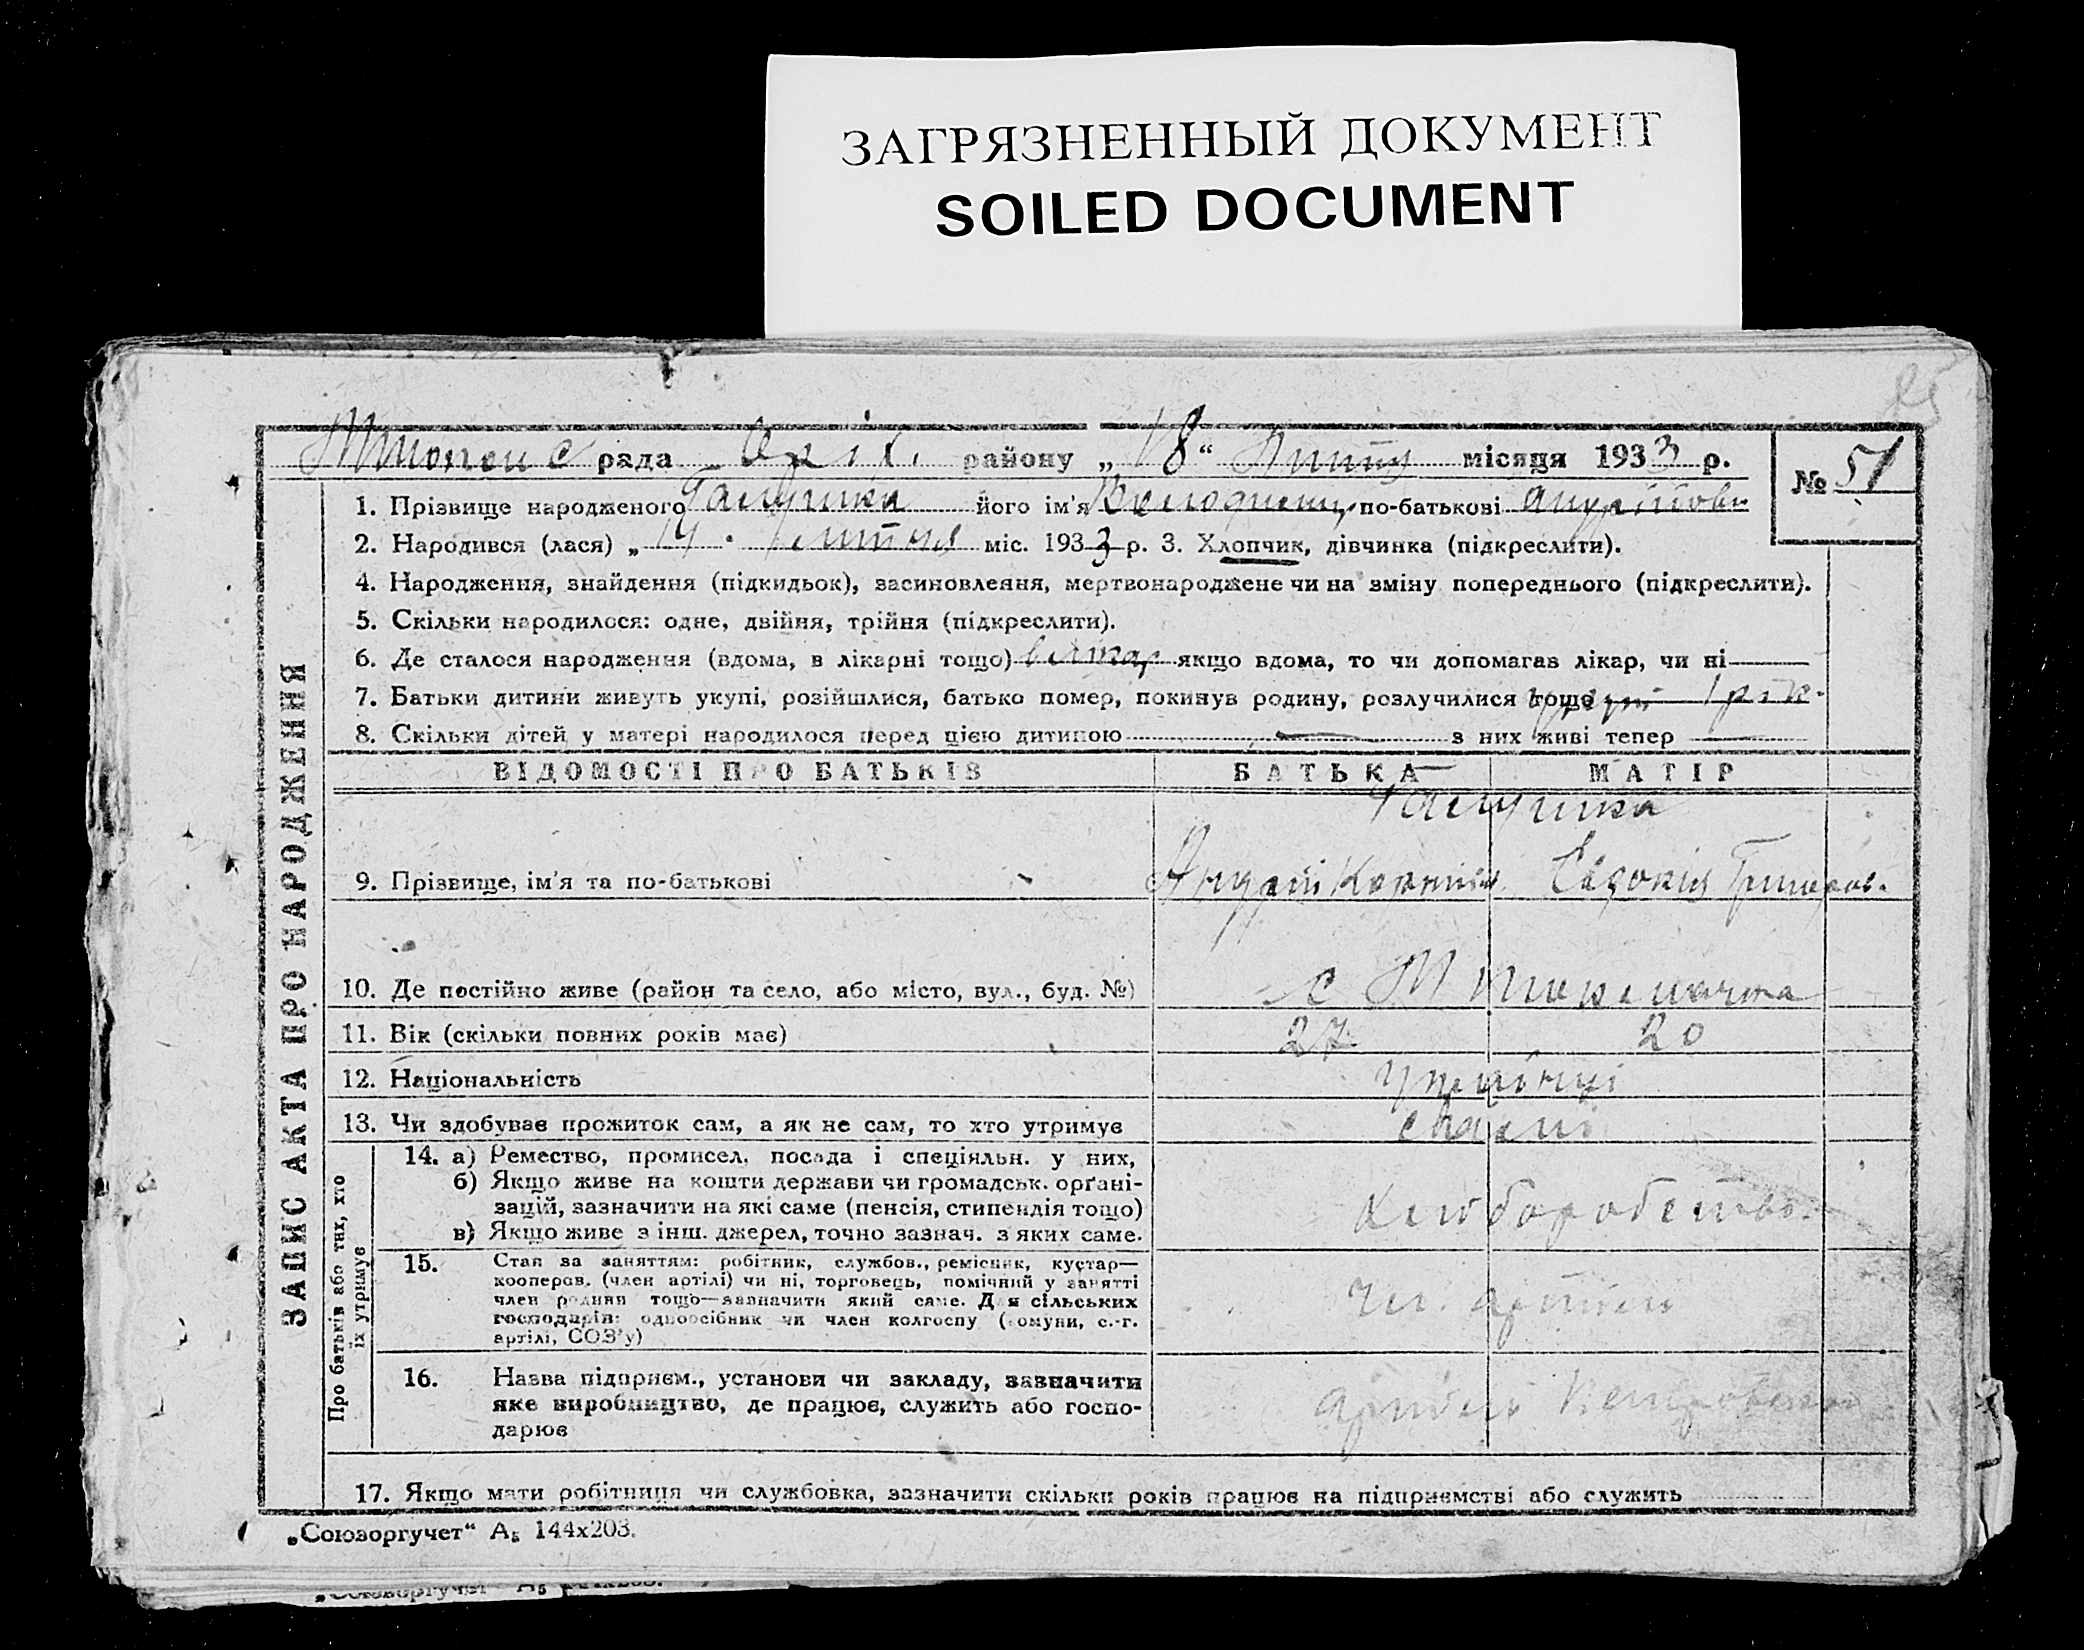 ЗАГРЯЗНЕННЫЙ ДОКУМЕНТ
SOILED DOCUMENT
рада Оріх. району „18“ місяця 1933 р.
№ 51
1. Прізвище народженого Галушка його ім'я Володимир по-батькові Андрійови
2. Народився (лася) „14 міс. 1933 р. 3. Хлопчик, дівчинка (підкреслити).
4. Народження, знайдення (підкидьок), засиновлення, мертвонароджене чи на зміну попереднього (підкреслити).
5. Скільки народилося: одне, двійня, трійня (підкреслити).
6. Де сталося народження (вдома, в лікарні тощо) якщо вдома, то чи допомагав лікар, чи ні
7. Батьки дитини живуть укупі, розійшлися, батько помер, покинув родину, розлучилися тощо 1 рік.
8. Скільки дітей у матері народилося перед цією дитиною — з них живі тепер —
ЗАПИС АКТА ПРО НАРОДЖЕННЯ
ВІДОМОСТІ ПРО БАТЬКІВ БАТЬКА МАТІР
Галушка
9. Прізвище, ім'я та по-батькові Андрій Евдокія Григоров.
10. Де постійно живе (район та село, або місто, вул., буд. №) с
11. Вік (скільки повних років має) 27 20
12. Національність Українці
13. Чи здобуває прожиток сам, а як не сам, то хто утримує
Про батьків або тих, хто
їх утримує
14. а) Ремество, промисел, посада і спеціяльн. у них,
б) Якщо живе на кошти держави чи громадськ. орґані-
зацій, зазначити на які саме (пенсія, стипендія тощо)
в) Якщо живе з інш. джерел, точно зазнач. з яких саме.
Хлібороб
15. Стан за заняттям: робітник, службов., ремісник, кустар—
кооперов. (член артілі) чи ні, торговець, помічний у занятті
член родини тощо—зазначити який саме. Для сільських
господарів: одноосібник чи член колгоспу (комуни, с.-г.
артілі, СОЗ'у)
Чл. артілі
16. Назва підприєм., установи чи закладу, зазначити
яке виробництво, де працює, служить або госпо-
дарює
17. Якщо мати робітниця чи службовка, зазначити скільки років працює на підприємстві або служить
„Союзоргучет“ А₅ 144х203.